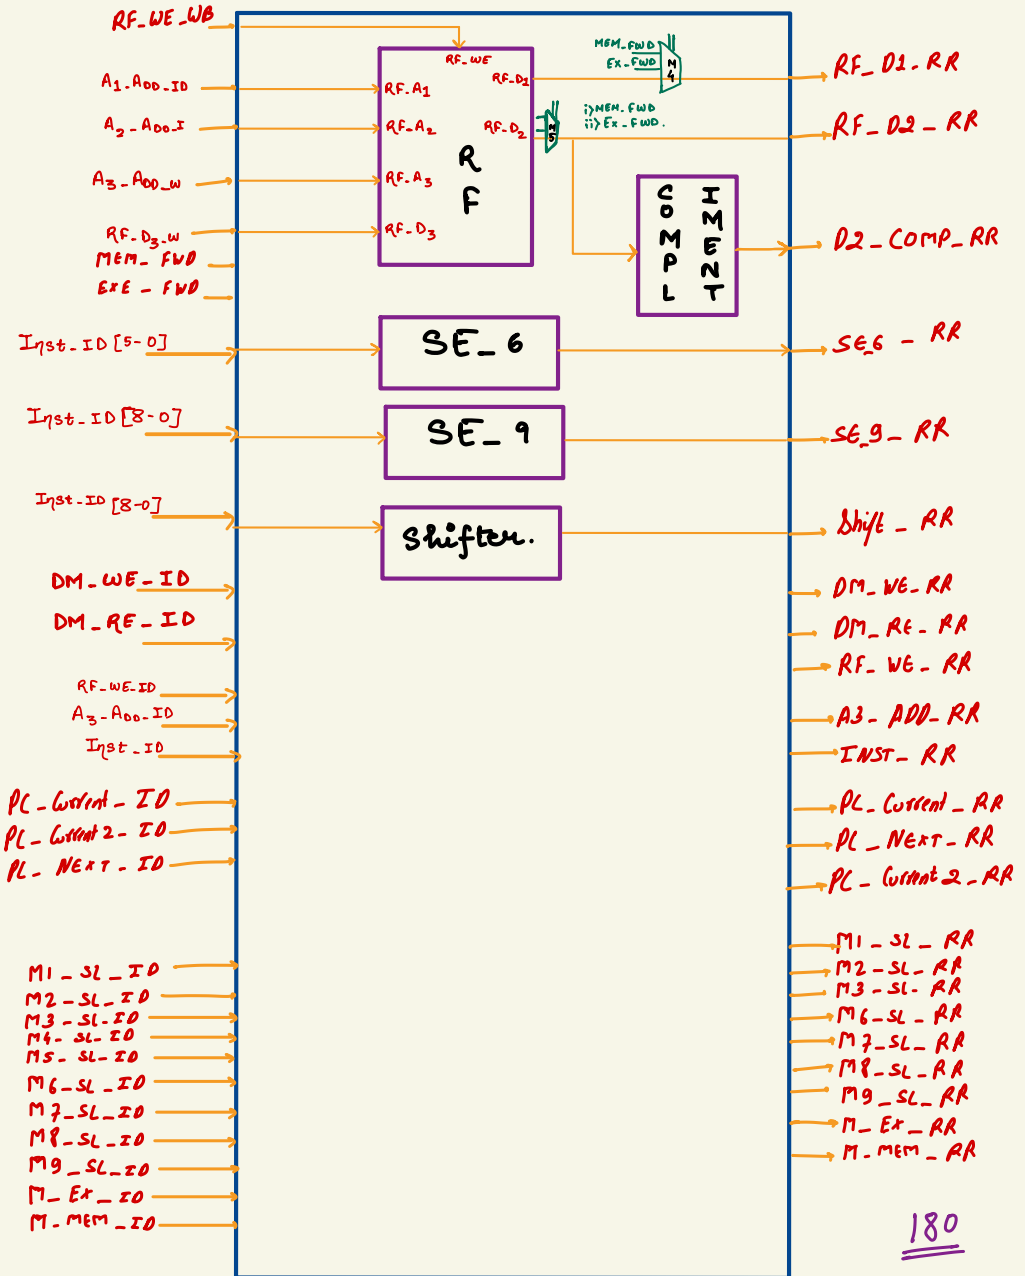 RF_WE_WB
A1_ADD_ID
A2_ADD_I
A3_ADD_W
RF_D3_W
MEM_FWD
EXE_FWD
Inst_ID [5-0]
Inst_ID [8-0]
Inst_ID [8-0]
DM_WE_ID
DM_RE_ID
RF_WE_ID
A3_ADD_ID
Inst_ID
PC_Current_ID
PC_Current2_ID
PC_NEXT_ID
M1_SL_ID
M2_SL_ID
M3_SL_ID
M4_SL_ID
M5_SL_ID
M6_SL_ID
M7_SL_ID
M8_SL_ID
M9_SL_ID
M_EX_ID
M_MEM_ID
RF_WE
RF_A1
RF_A2
RF_A3
RF_D3
RF
RF_D1
RF_D2
MEM_FWD
EX_FWD
M4
i> MEM_FWD
ii> EX_FWD.
M5
COMPL
IMENT
SE_6
SE_9
Shifter.
RF_D1_RR
RF_D2_RR
D2_COMP_RR
SE_6_RR
SE_9_RR
Shift_RR
DM_WE_RR
DM_RE_RR
RF_WE_RR
A3_ADD_RR
INST_RR
PC_Current_RR
PC_NEXT_RR
PC_Current2_RR
M1_SL_RR
M2_SL_RR
M3_SL_RR
M6_SL_RR
M7_SL_RR
M8_SL_RR
M9_SL_RR
M_EX_RR
M_MEM_RR
180